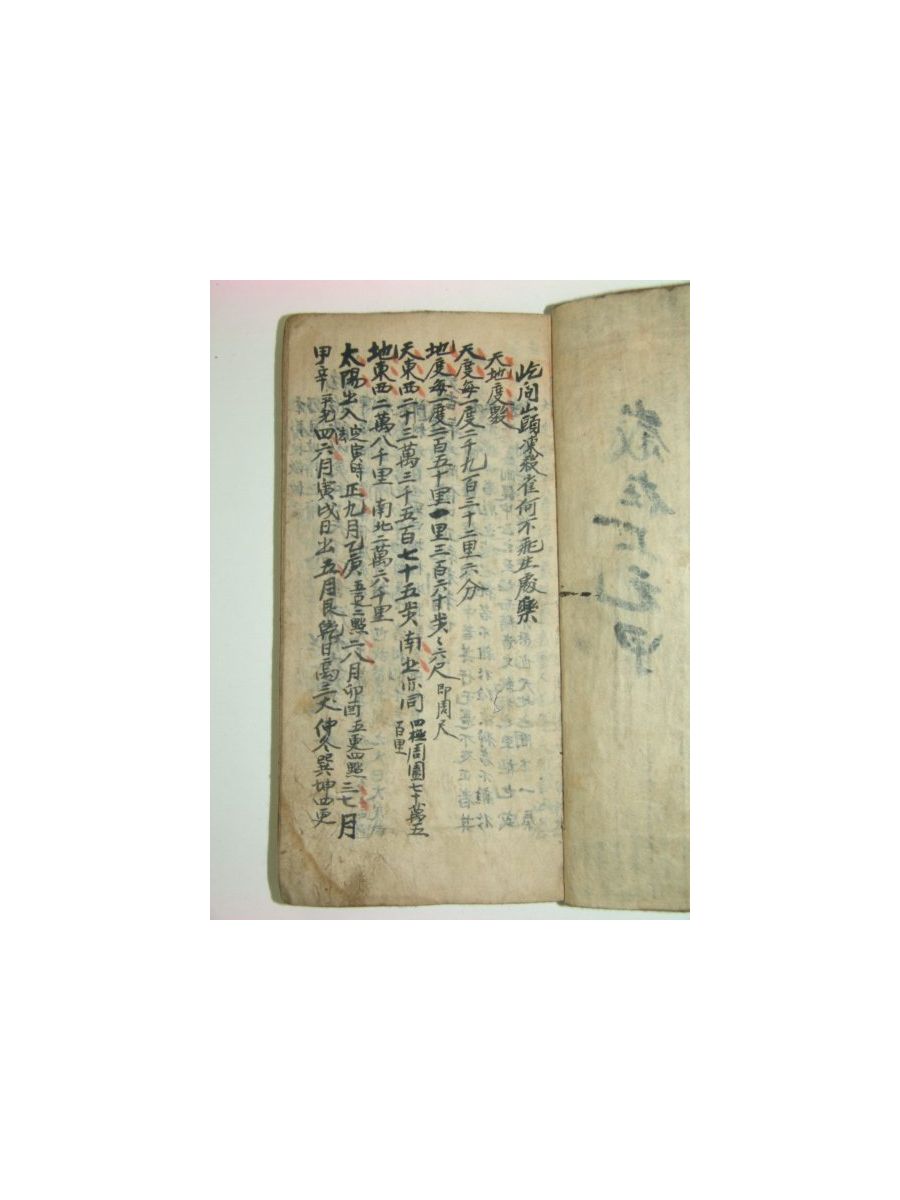 屹间山頭凍殺雀何不飛生處樂
天地度數
天度每一度二千九百三十二里六分
地度每一度二百五十里一里三百六十步〻六尺 即周尺
天東西二十三萬三千五百七十五步南北亦同 四極周圍七十萬五百里
地東西二萬八千里 南北二萬六千里
太陽出入法 定寅時 正九月乙庚 五更二點 二八月卯酉 五更四點 三七月
甲辛 平光 四六月寅戌日出五月艮乾日高三丈仲冬巽坤四更